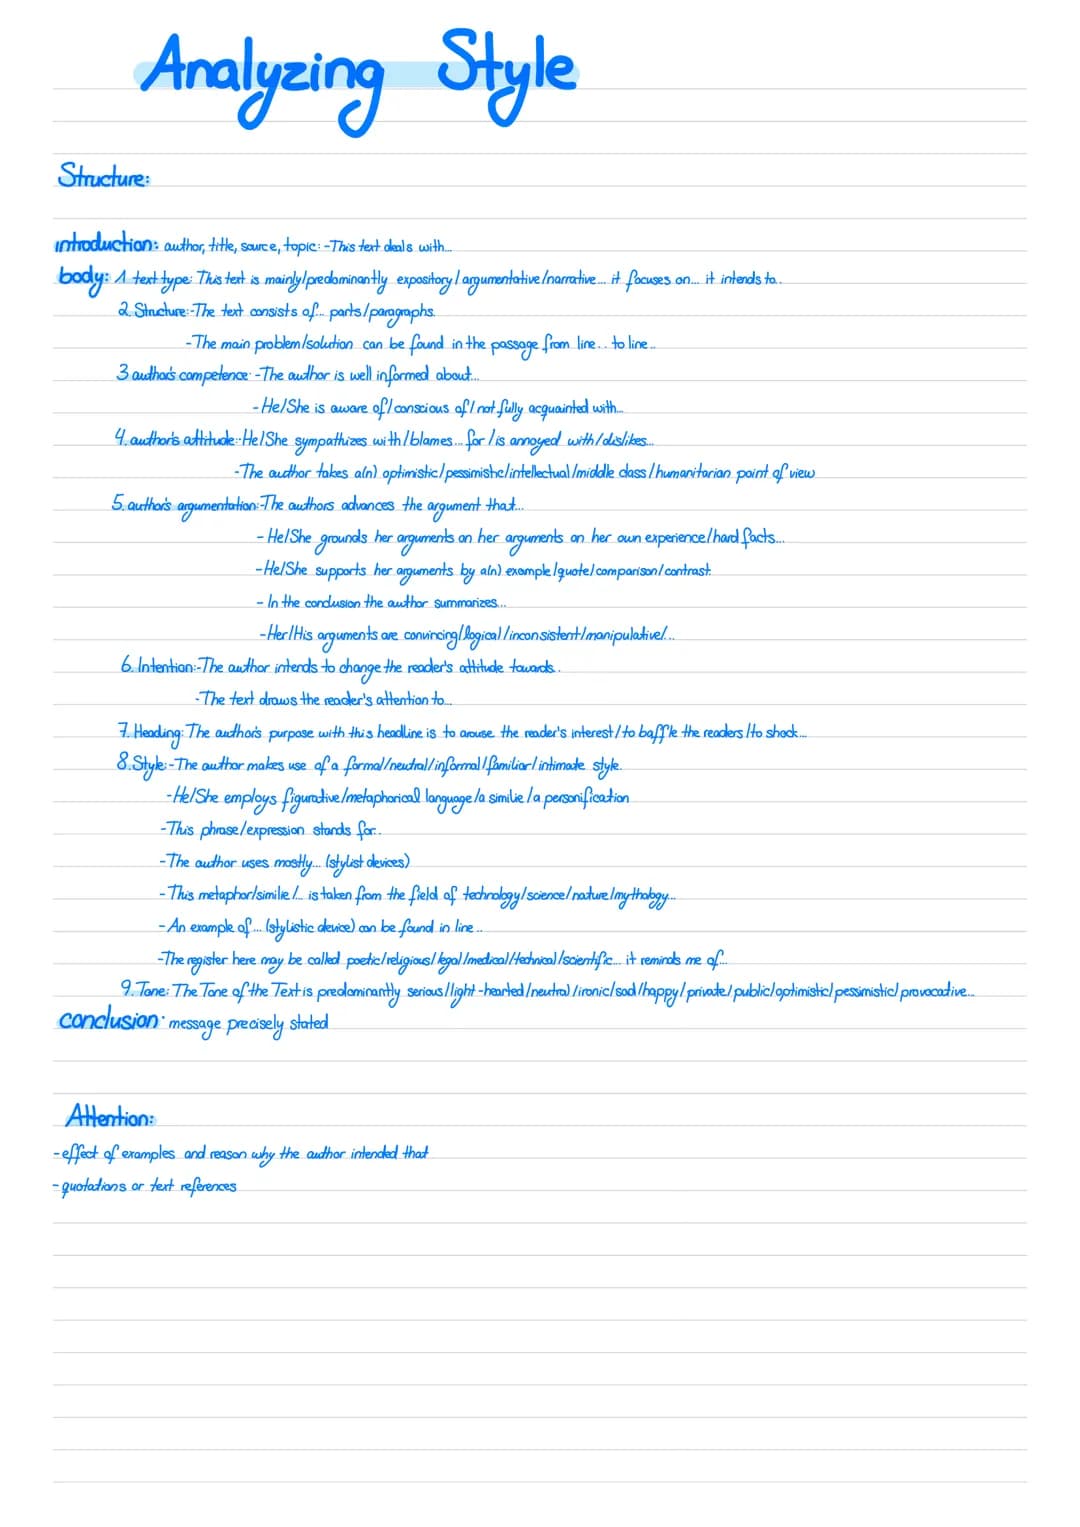 Analyzing Style
Structure:
introduction: author, title, source, topic: -This text deals with...
body: 1. text type: This text is mainly/predominantly expository/argumentative/narrative... it focuses on... it intends to..
2. Structure:-The text consists of... parts/paragraphs.
-The main problem/solution can be found in the passage from line... to line..
3 author's competence: -The author is well informed about...
-He/She is aware of/conscious of/not fully acquainted with...
4. author's attitude:-He/She sympathizes with/blames... for/is annoyed with/dislikes...
-The author takes a(n) optimistic/pessimistic/intellectual/middle class/humanitarian point of view
5. author's argumentation:-The authors advances the argument that...
- He/She grounds her arguments on her arguments on her own experience/hard facts...
-He/She supports her arguments by a(n) example/quote/comparison/contrast.
- In the conclusion the author summarizes...
-Her/His arguments are convincing/logical/inconsistent/manipulative/...
6. Intention:-The author intends to change the reader's attitude towards..
-The text draws the reader's attention to...
7. Heading: The author's purpose with this headline is to arouse the reader's interest/to baffle the readers/to shock...
8. Style:-The author makes use of a formal/neutral/informal/familiar/intimate style.
-He/She employs figurative/metaphorical language/a similie/a personification
-This phrase/expression stands for..
-The author uses mostly... (stylist devices)
-This metaphor/similie/... is taken from the field of technology/science/nature/mythology...
-An example of... (stylistic device) can be found in line..
-The register here may be called poetic/religious/legal/medical/technical/scientific... it reminds me of...
9. Tone: The Tone of the Text is predominantly serious/light-hearted/neutral/ironic/sad/happy/private/public/optimistic/pessimistic/provocative...
conclusion: message precisely stated
Attention:
-effect of examples and reason why the author intended that
-quotations or text references